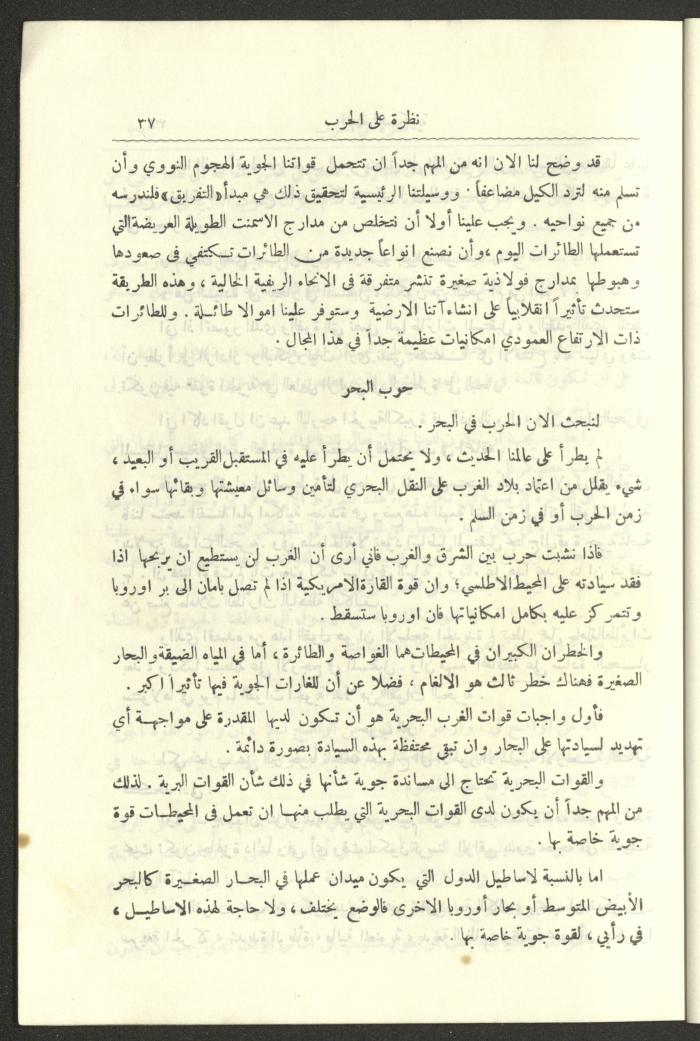 نظرة على الحرب ٣٧
قد وضح لنا الان انه من المهم جداً ان تتحمل قواتنا الجوية الهجوم النووي وأن
تسلم منه لترد الكيل مضاعفاً . ووسيلتنا الرئيسية لتحقيق ذلك هي مبدأ «التفريق» فلندرسه
من جميع نواحيه . ويجب علينا أولا أن نتخلص من مدارج الاسمنت الطويلة العريضة التي
تستعملها الطائرات اليوم ، وأن نصنع انواعاً جديدة من الطائرات تكتفي في صعودها
وهبوطها بمدارج فولاذية صغيرة تنشر متفرقة في الانحاء الريفية الخالية ، وهذه الطريقة
ستحدث تأثيراً انقلابياً على انشاءآتنا الارضية وستوفر علينا اموالا طائلة . وللطائرات
ذات الارتفاع العمودي امكانيات عظيمة جداً في هذا المجال .
حرب البحر
لنبحث الان الحرب في البحر .
لم يطرأ على عالمنا الحديث ، ولا يحتمل أن يطرأ عليه في المستقبل القريب أو البعيد ،
شيء يقلل من اعتماد بلاد الغرب على النقل البحري لتأمين وسائل معيشتها وبقائها سواء في
زمن الحرب أو في زمن السلم .
فاذا نشبت حرب بين الشرق والغرب فاني أرى أن الغرب لن يستطيع ان يربحها اذا
فقد سيادته على المحيط الاطلسي ؛ وان قوة القارة الامريكية اذا لم تصل بامان الى بر اوروبا
وتتمركز عليه بكامل امكانياتها فان اوروبا ستسقط .
والخطران الكبيران في المحيطات هما الغواصة والطائرة ، أما في المياه الضيقة والبحار
الصغيرة فهناك خطر ثالث هو الالغام ، فضلا عن أن للغارات الجوية فيها تأثيراً اكبر .
فأول واجبات قوات الغرب البحرية هو أن تكون لديها المقدرة على مواجهة أي
تهديد لسيادتها على البحار وان تبقى محتفظة بهذه السيادة بصورة دائمة .
والقوات البحرية تحتاج الى مساندة جوية شأنها في ذلك شأن القوات البرية . لذلك
من المهم جداً أن يكون لدى القوات البحرية التي يطلب منها ان تعمل في المحيطات قوة
جوية خاصة بها .
اما بالنسبة لاساطيل الدول التي يكون ميدان عملها في البحار الصغيرة كالبحر
الأبيض المتوسط أو بحار أوروبا الاخرى فالوضع يختلف ، ولا حاجة لهذه الاساطيل ،
في رأيي ، لقوة جوية خاصة بها .